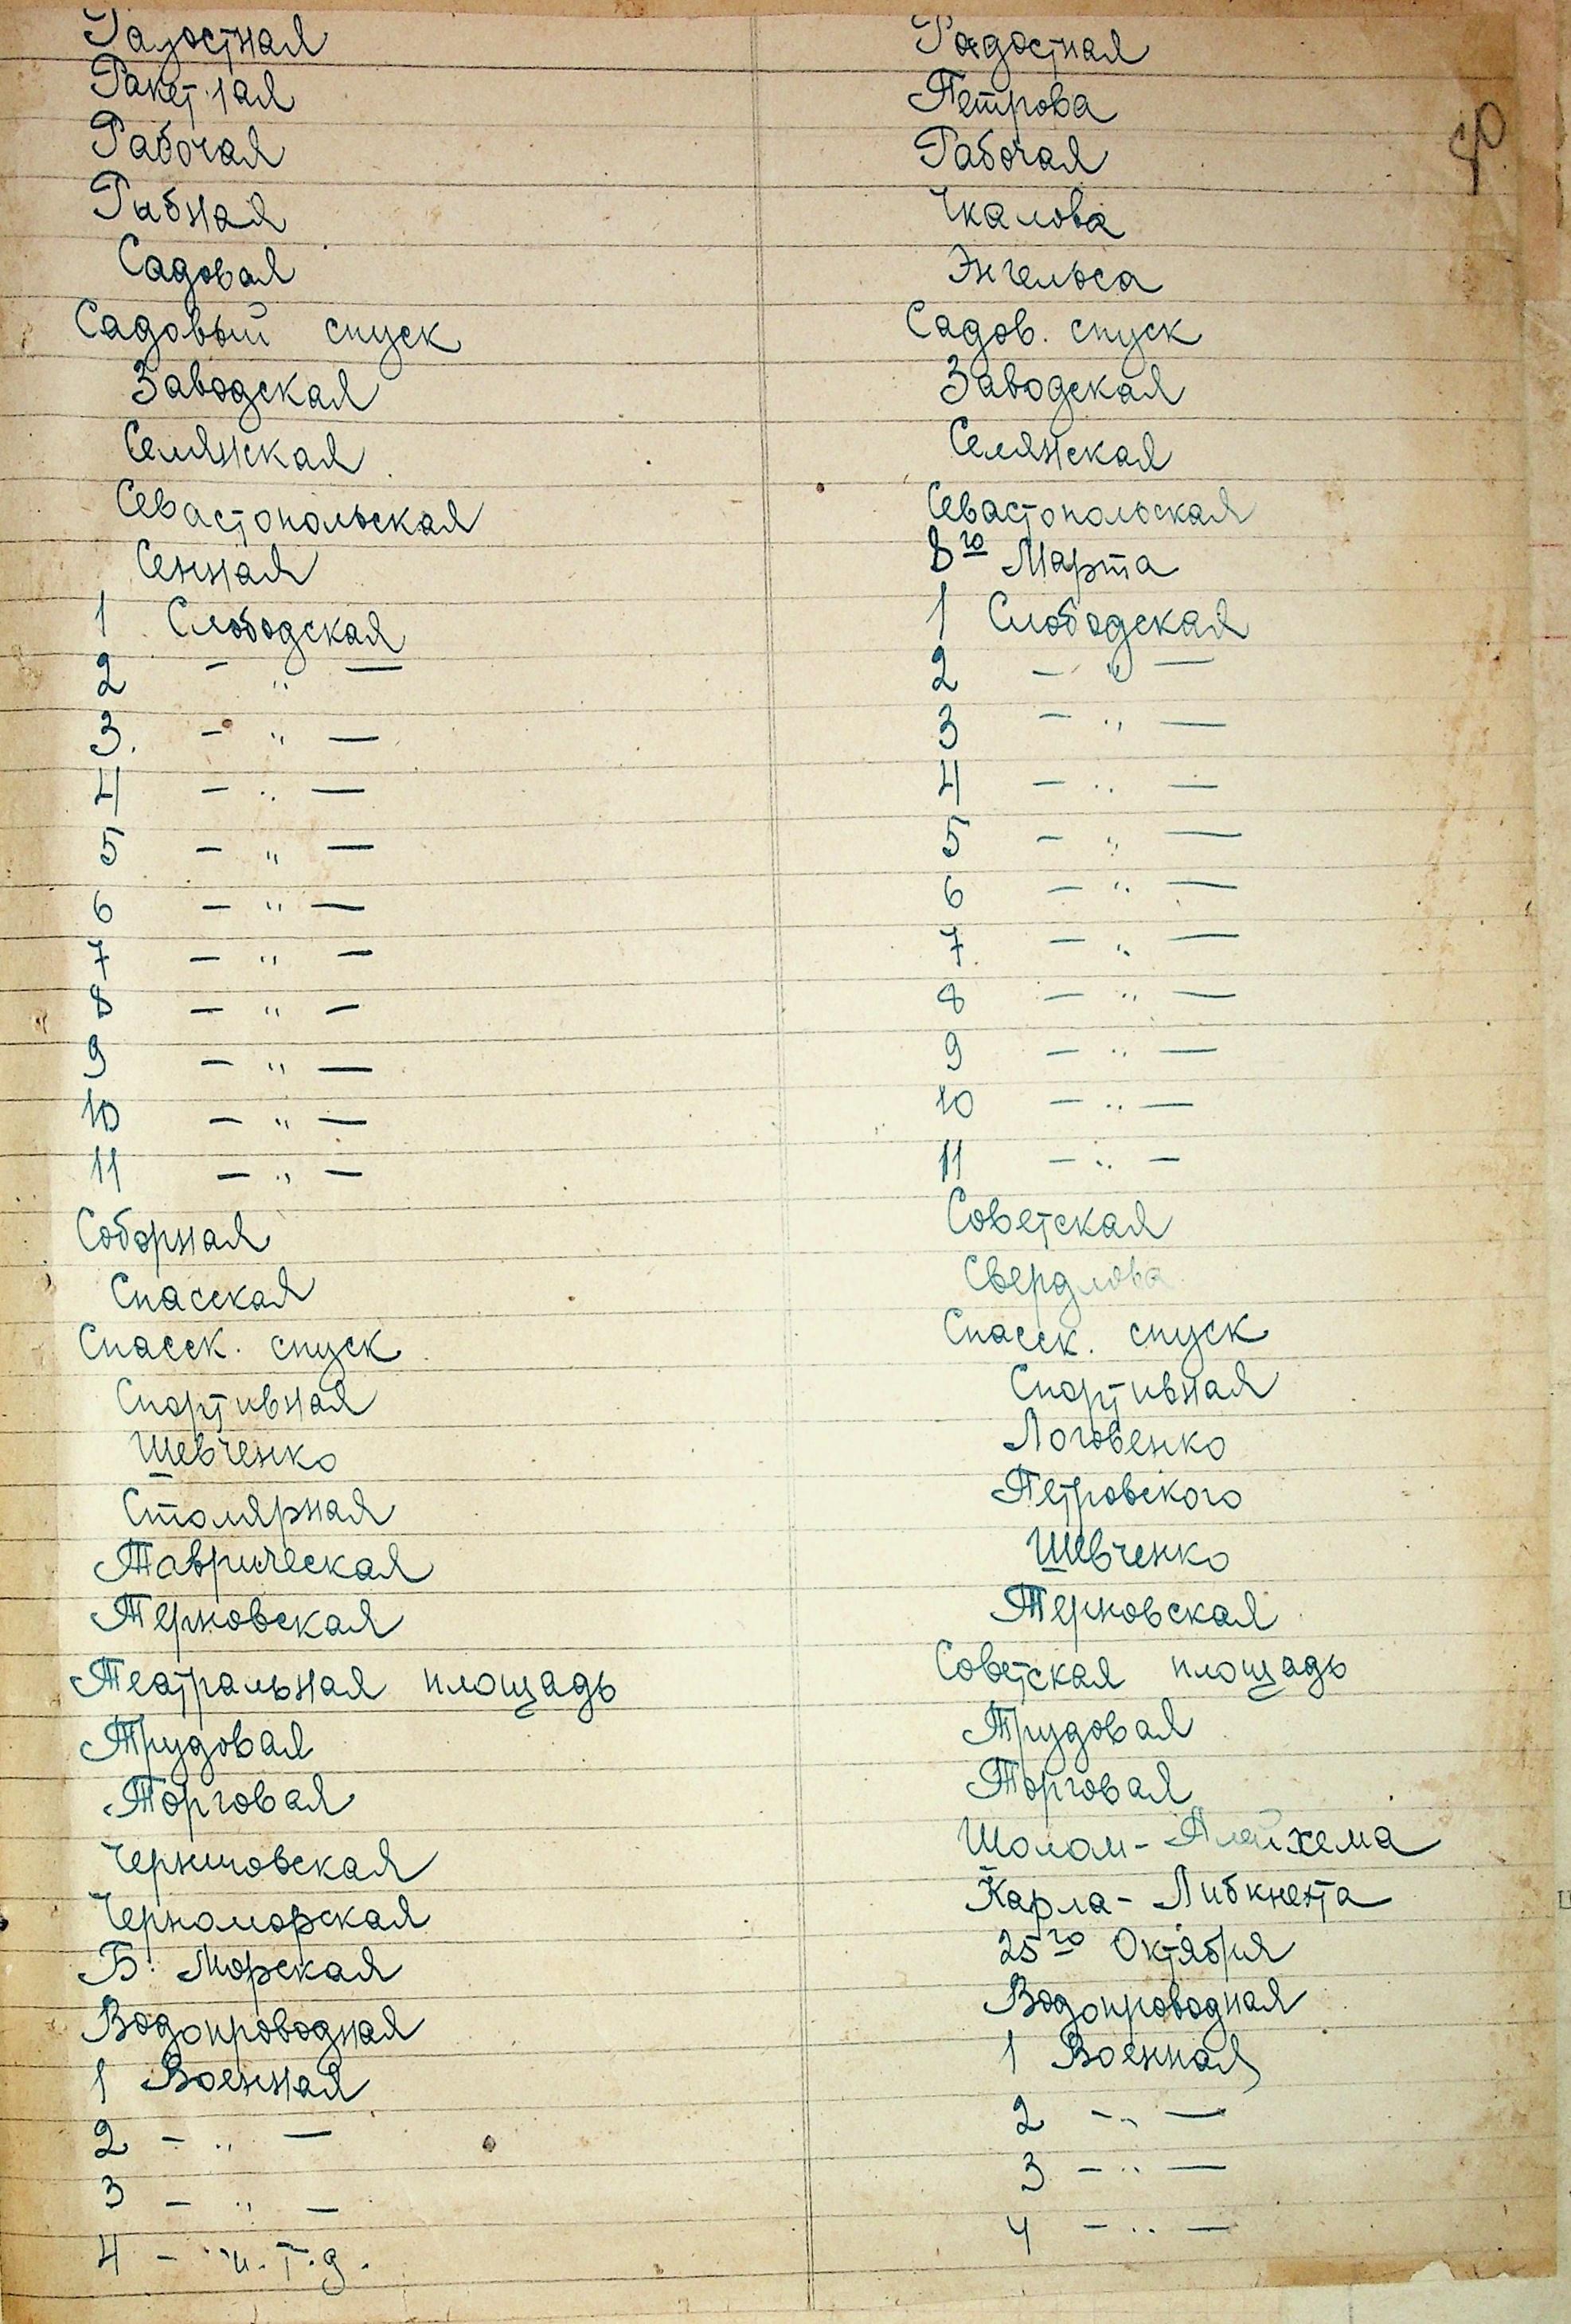 Радостная Радостная
Ракетная Петрова
Рабочая Рабочая
Рыбная Чкалова
Садовая Энгельса
Садовый спуск Садов. спуск
Заводская Заводская
Селянская Селянская
Севастопольская Севастопольская
Сенная 8го Марта
1 Слободская 1 Слободская
2 - " - 2 - " -
3. - " - 3 - " -
4 - " - 4 - " -
5 - " - 5 - " -
6 - " - 6 - " -
7 - " - 7 - " -
8 - " - 8 - " -
9 - " - 9 - " -
10 - " - 10 - " -
11 - " - 11 - " -
Соборная Советская
Спасская Свердлова
Спасск. спуск Спасск. спуск
Спортивная Спортивная
Шевченко Логовенко
Столярная Петровского
Таврическая Шевченко
Терновская Терновская
Театральная площадь Советская площадь
Трудовая Трудовая
Торговая Торговая
Черниговская Шолом-Алейхема
Черноморская Карла-Либкнехта
Б. Морская 25го Октября
Водопроводная Водопроводная
1 Военная 1 Военная
2 - " - 2 - " -
3 - " - 3 - " -
4 - и.т.д. 4 - " -